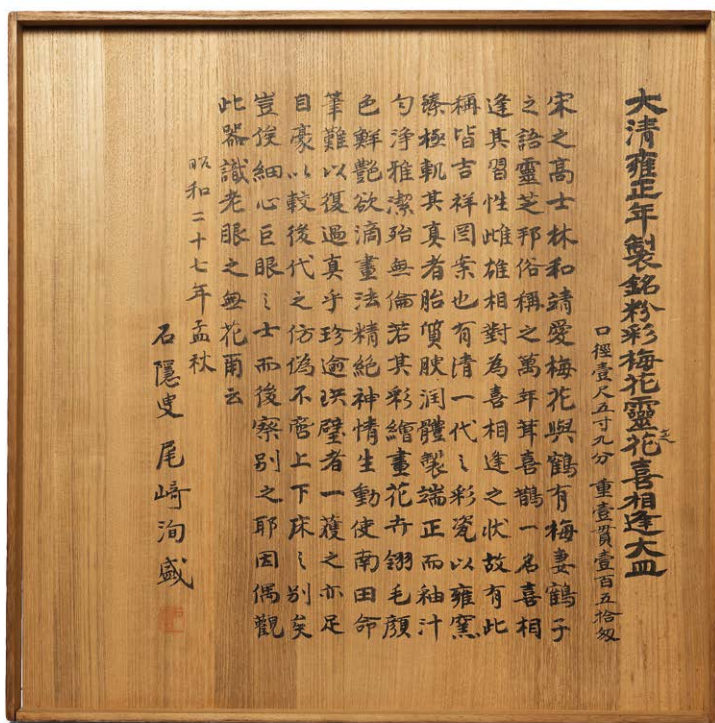 大清雍正年製銘粉彩梅花靈花喜相逢大皿
芝
口徑壹尺五寸九分 重壹貫壹百五拾匁
宋之高士林和靖愛梅花與鶴有梅妻鶴子
之語靈芝邦俗稱之萬年茸喜鵲一名喜相
逢其習性雌雄相對為喜相逢之狀故有此
稱皆吉祥图案也有清一代之彩瓷以雍窯
臻極軌其真者胎質腴润體製端正而釉汁
匀淨雅潔殆無倫若其彩繪畫花卉翎毛顏
色鮮艷欲滴畫法精絕神情生動使南田命
筆難以復過真乎珍逾珙璧者一獲之亦足
自豪以較後代之仿偽不啻上下床之別矣
豈俟細心巨眼之士而後察別之耶因偶觀
此器識老眼之無花爾云
昭和二十七年孟秋
石隱叟 尾崎洵盛